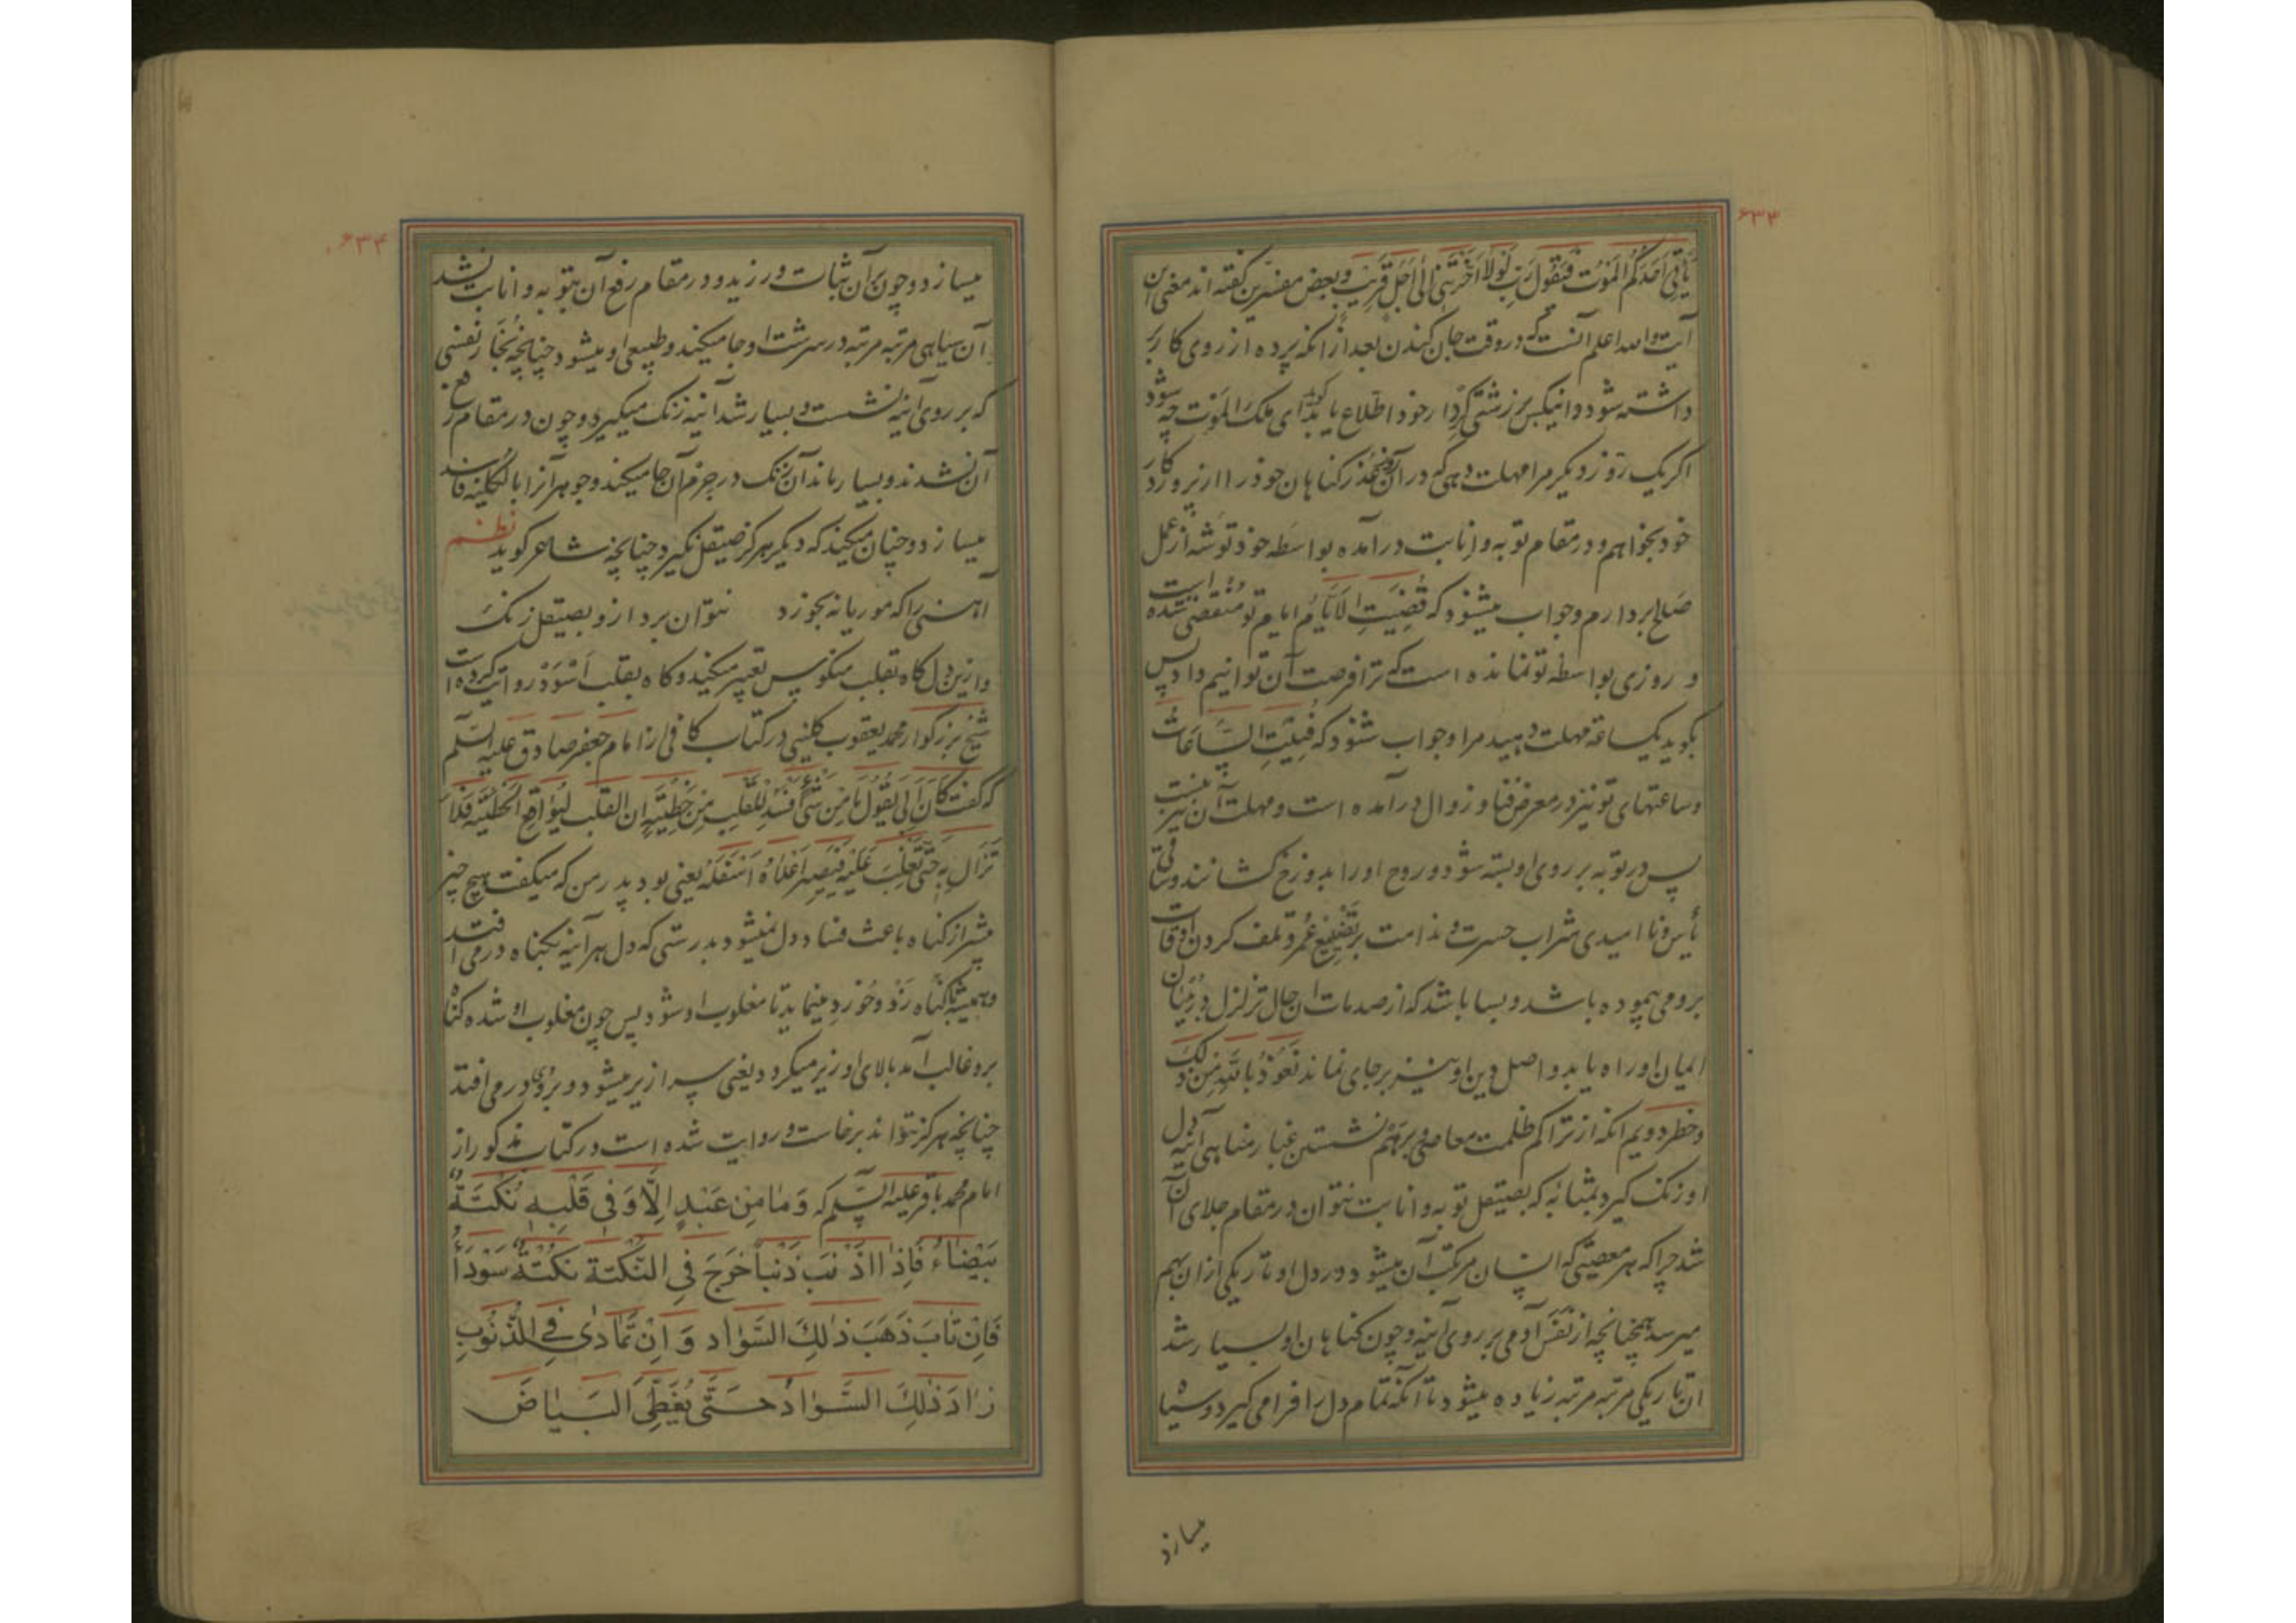 ۶۳۳
یَأتِیَ اَحَدَکُمُ المَوْتُ فَیَقُولَ رَبِّ لَوْلَا اَخَّرْتَنِی اِلٰی اَجَلٍ قَرِیْبٍ وبعض مفسرین گفته اند معنی این
آیت والله اعلم آنست که در وقت جان کندن بعد از انکه پرده از روی کار بر
داشته شود وانیکس بر زشتی کردار خود اطلاع یابد گوید ای ملک الموت چه شود
اکر یک روز دیکر مرا مهلت دهی که در آن روز عذر کناهان خود را از پروردکار
خود بخواهم و در مقام توبه و انابت درآمده بواسطه خود توشه از عمل
صالح بردارم وجواب میشنود که فُنِیَتِ الاَیَّامُ ایام تو منقضی شده است
و روزی بواسطه تو نمانده است که ترا فرصت آن توانیم داد پس
بکوید یکساعته مهلت دهید مرا وجواب شنود که فُنِیَتِ السَّاعَاتُ
وساعتهای تو نیز در معرض فنا و زوال درآمده است و مهلت آن نیز نیست
پس در توبه بر روی او بسته شود و روح او را بدوزخ کشانند وساقی
یأس و نا امیدی شراب حسرت و ندامت بر تضییع عمر و تلف کردن اوقات
برو می پیموده باشد و بسا باشد که از صدمات ان حال تزلزل در بنیان
ایمان او راه یابد و اصل دین او نیز بر جای نماند نَعُوذُ بِاللهِ مِنْ ذٰلِکَ
وخطر دویم انکه از تراکم ظلمت معاصی و بر هم نشستن غبار مناهی آئینه دل
او زنک کیرد بمثابه که بصیقل توبه و انابت نتوان در مقام جلای آن
شد چرا که هر معصیتی که انسان مرتکب آن میشود در دل او تاریکی از ان بهم
میرسد همچنانچه از نفس آدمی بر روی آینه و چون کناهان او بسیار شد
ان تاریکی مرتبه مرتبه زیاده میشود تا آنکه تمام دل را فرا می کیرد و سیاه
میسازد
۶۳۴
میسازد و چون بر آن ثبات ورزید و در مقام رفع آن بتوبه و انابت نشد
آن سیاهی مرتبه مرتبه در سرشت او جا میکند و طبیعی او میشود چنانچه بخار نفسی
که بر روی آینه نشست و بسیار شد آینه زنک میکیرد و چون در مقام رفع
آن نشدند و بسیار ماند آن زنک در جرم آن جا میکند و جوهر آنرا بالکلیه فاسد
میسازد و چنان میکند که دیکر هرکز صیقل نکیرد چنانچه شاعر کوید نظم
آهنی را که موریانه بخورد نتوان برد ازو بصیقل زنک
و از ین دل کاه بقلب منکوس تعبیر میکنند و کاه بقلب اَسْوَدْ روایت کرده است
شیخ بزرکوار محمد یعقوب کلینی در کتاب کافی از امام جعفر صادق علیه السلم
که گفت کَانَ اَبِی یَقُولُ مَا مِنْ شَیْءٍ اَفْسَدَ لِلْقَلْبِ مِنْ خَطِیْئَةٍ اِنَّ القَلْبَ لَیُوَاقِعُ الخَطِیْئَةَ فَلَا
تَزَالُ بِهِ حَتّٰی تَغْلِبَ عَلَیْهِ فَیَصِیْرَ اَعْلَاهُ اَسْفَلَهُ یعنی بود پدر من که میکفت هیچ چیز
بیشتر از کناه باعث فساد دل نمیشود بدرستی که دل هر آینه بکناه در می افتد
و همیشه با کناه زد و خورد مینماید تا مغلوب او شود پس چون مغلوب او شد و کناه
برو غالب آمد بالای او زیر میکردد یعنی سرازیر میشود و بر رو در می افتد
چنانچه هرکز نتواند برخاست و روایت شده است در کتاب مذکور از
امام محمد باقر علیه السلم که وَمَا مِنْ عَبْدٍ اِلَّا وَفِی قَلْبِهِ نُکْتَةٌ
بَیْضَاءُ فَاِذَا اذْنَبَ ذَنْباً خَرَجَ فِی النُّکْتَةِ نُکْتَةٌ سَوْدَاءُ
فَاِنْ تَابَ ذَهَبَ ذٰلِكَ السَّوٰادُ وَ اِنْ تَمَادٰی فِی الذُّنُوبِ
زَادَ ذٰلِكَ السَّوٰادُ حَتَّی یُغَطِّیَ البَیَاضَ